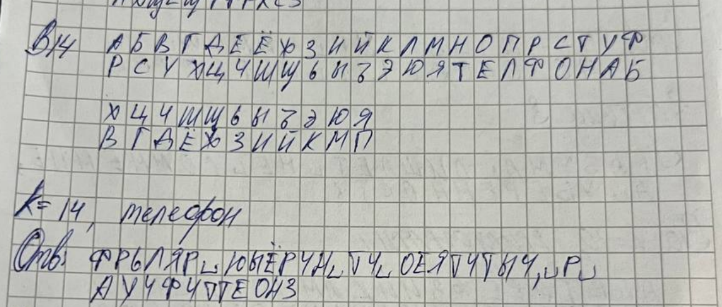 В14 А Б В Г Д Е Ё Ж З И Й К Л М Н О П Р С Т У Ф
Р С У Х Ц Ч Ш Щ Ь Ы Ъ Э Ю Я Т Е Л Ф О Н А Б
Х Ц Ч Ш Щ Ь Ы Ъ Э Ю Я
В Г Д Ё Ж З И Й К М П
k=14, телефон
Отв: ФРЬЛЯР␣ЮЫЁРЧН␣ТЧ␣ОЕЯТЧТЫЧ,␣Р␣
АУЧФЧТТЕОНЗ